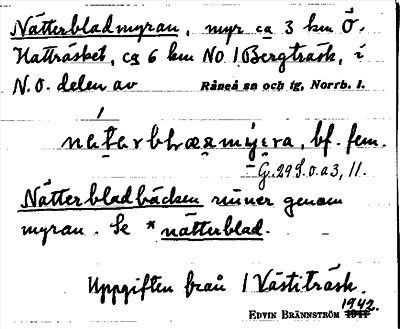 Nätterbladmyran, myr ca 3 km Ö.
Hatträsket, ca 6 km NO. Bergträsk, i
N.O. delen av Råneå sn och tg, Norrb. l.
bf. fem.
G. 29 S. 0. a 3, 11.
Nätterbladbäcken rinner genom
myran. Se *nätterblad.
Uppgiften från Västiträsk.
1942.
EDVIN BRÄNNSTRÖM 1941